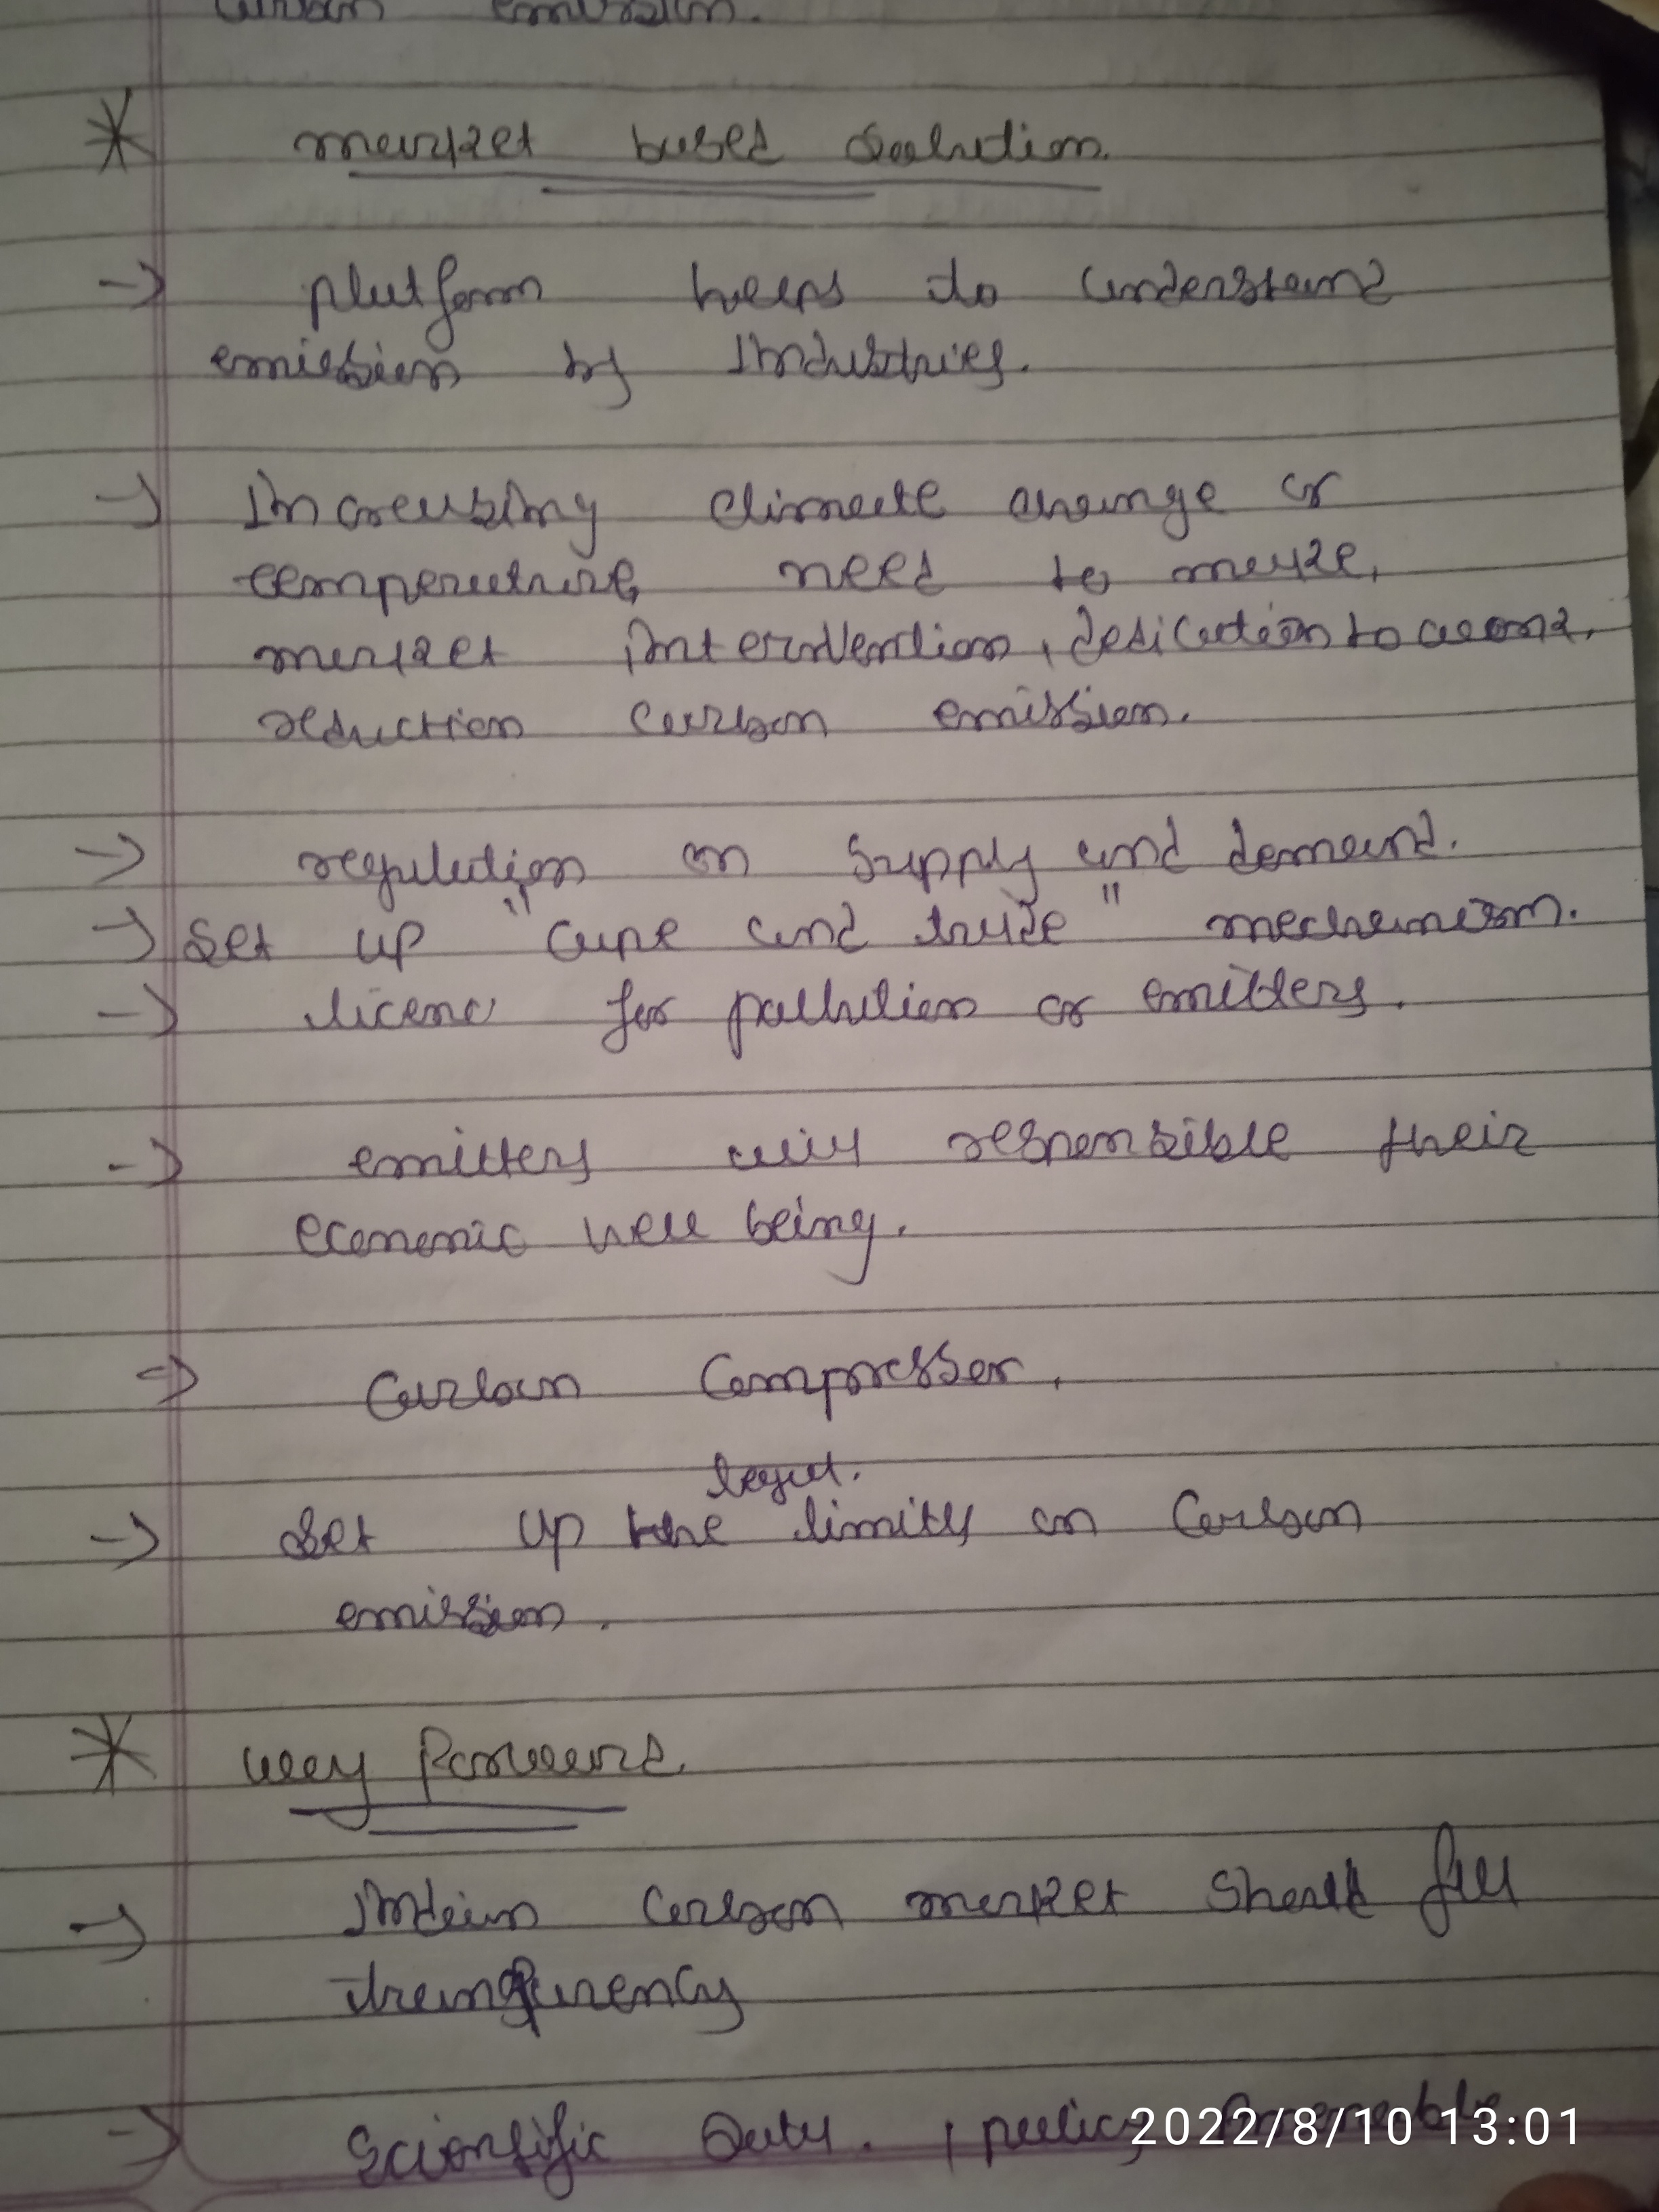 carbon emission.
* market based solution.
→ platform helps to understand
emission by Industries.
→ Increasing climate change or
temperature, need to make,
market intervention, dedication to
reduction carbon emission.
→ regulation on supply and demand.
→ set up "cape and trade" mechanism.
→ licenc for pollution or emitters.
→ emitters will responsible their
economic well being.
⇒ Carbon Compressor.
legal.
→ set up the limits on Carbon
emission.
* way forward.
→ Indian Carbon market should full
transparency
→ Scientific Data. , policy
2022/8/10 13:01